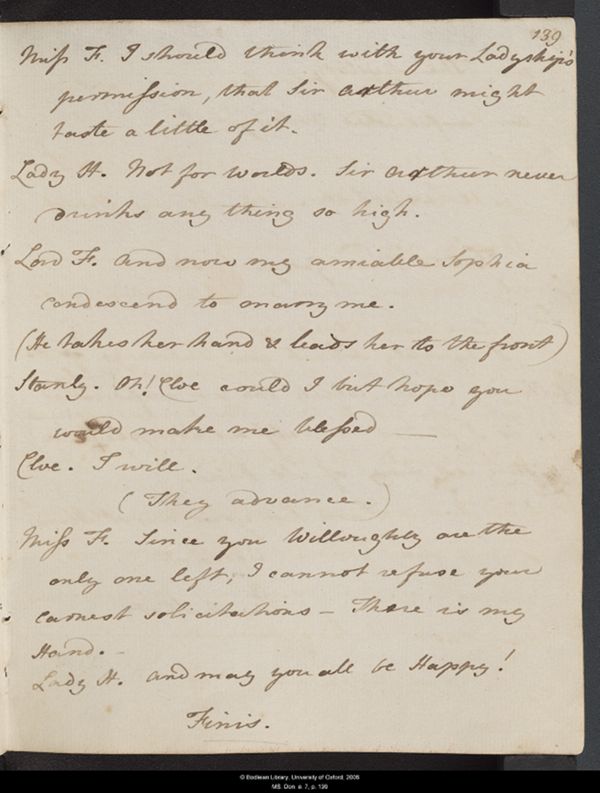 139
Miss F. I should think with your Ladyship's
permission, that Sir Arthur might
taste a little of it.
Lady H. Not for worlds. Sir Arthur never
drinks any thing so high.
Lord F. And now my amiable Sophia
condescend to marry me.
(He takes her hand & leads her to the front)
Stanly. Oh! Cloe could I but hope you
would make me blessed —
Cloe. I will.
(They advance.)
Miss F. Since you Willoughby are the
only one left, I cannot refuse your
earnest solicitations — There is my
Hand. —
Lady H. And may you all be Happy!
Finis.
© Bodleian Library, University of Oxford, 2008
MS. Don. e. 7, p. 139